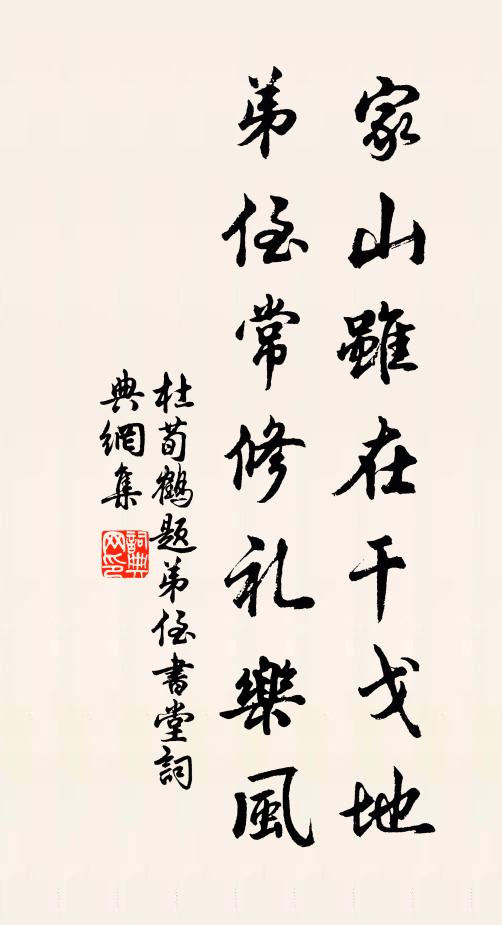 家山雖在干戈地
弟侄常修礼樂風
杜荀鶴題弟侄書堂詞
典網集
詞典网印